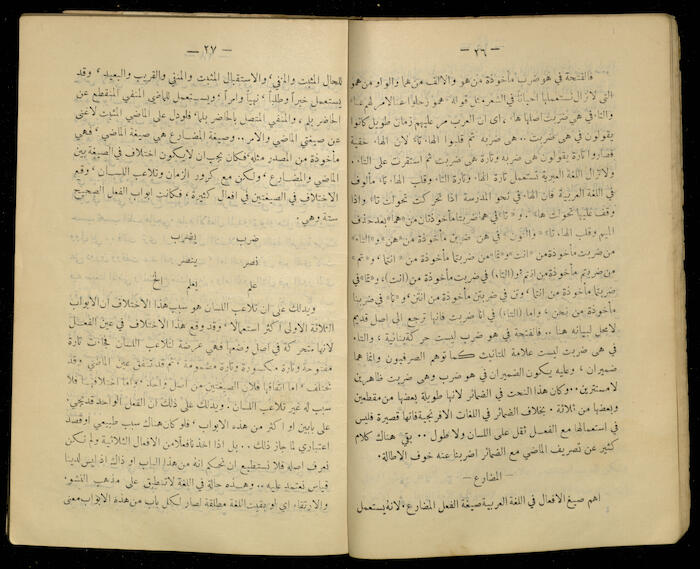 — ٢٦ —
فالفتحة في هو ضرب مأخوذة من هو والالف من هما والواو من همو
التي لا تزال نستعملها احياناً في الشعر مثل قوله «همو رحلوا عنا لامر لهم عنا»
والتاء في هي ضربت اصلها ها، اي ان العرب مر عليهم زمان طويل كانوا
يقولون في هي ضربت .. هي ضربه ثم قلبوا الهاء تاء لان الهاء خفية
فصاروا تارة يقولون هي ضربه وتارة هي ضربت ثم استقرت على التاء.
ولا تزال اللغة العبرية تستعمل تارة الهاء وتارة التاء وقلب الهاء تاء مألوف
في اللغة العربية فان الهاء في نحو المدرسة اذا تحركت تحولت تاء واذا
وقف عليها تحولت هاء. و «تا» في هما ضربتا مأخوذتان من «هما» بعد حذف
الميم وقلب الهاء تاء. والنون في هن ضربن مأخوذة من «هن» و «التاء»
من ضربت مأخوذة من «انت» و «تما» من ضربتما مأخوذة من «انتما» و «تم»
من ضربتم مأخوذة من انتم و (التاء) في ضربت مأخوذة من (انت)، و«تما» في
ضربتما مأخوذة من انتما، وتن في ضربتن مأخوذة من انتن، و«نا» في ضربنا
مأخوذة من نحن، واما (التاء) في انا ضربت فانها ترجع الى اصل قديم
لا محل لبيانه هنا .. فالفتحة في هو ضرب ليست حركة بنائية، والتاء
في هي ضربت ليست علامة للتانيث كما توهم الصرفيون وانما هما
ضميران، وعليه يكون الضميران في هو ضرب وهي ضربت ظاهرين
لا مستترين .. وكان هذا النحت في الضمائر لانها طويلة بعضها من مقطعين
وبعضها من ثلاثة. بخلاف الضمائر في اللغات الافرنجية فانها قصيرة فليس
في استعمالها مع الفعل ثقل على اللسان ولا طول .. بقي هناك كلام
كثير عن تصريف الماضي مع الضمائر اضربنا عنه خوف الاطالة.
— المضارع —
اهم صيغ الافعال في اللغة العربية صيغة الفعل المضارع، لانه يستعمل
— ٢٧ —
للحال المثبت والمنفي، والاستقبال المثبت والمنفي والقريب والبعيد، وقد
يستعمل خبراً وطلباً، نهياً وامراً، ويستعمل للماضي المنفي المنقطع عن
الحاضر بلم، والمنفي المتصل بالحاضر بلما، فلو دل على الماضي المثبت لاغنى
عن صيغتي الماضي والامر .. وصيغة المضارع هي صيغة الماضي، فهي
مأخوذة من المصدر مثله، فكان يجب ان لا يكون اختلاف في الصيغة بين
الماضي والمضارع، ولكن مع كرور الزمان وتلاعب اللسان، وقع
الاختلاف في الصيغتين في افعال كثيرة، فكانت ابواب الفعل الصحيح
ستة وهي:
ضرب يضرب
نصر ينصر
علم يعلم الخ
ويدلك على ان تلاعب اللسان هو سبب هذا الاختلاف أن الابواب
الثلاثة الاولى اكثر استعمالاً، وقد وقع هذا الاختلاف في عين الفعل
لانها متحركة في اصل وضعها فهي عرضة لتلاعب اللسان فجاءت تارة
مفتوحة وتارة مكسورة وتارة مضمومة، ثم قد تتفق عين الماضي وقد
تختلف، اما اتفاقها فلان الصيغتين من اصل واحد، واما اختلافها فلا
سبب له غير تلاعب اللسان. ويدلك على ذلك ان الفعل الواحد قد يجيء
على بابين او اكثر من هذه الابواب، فلو كان هناك سبب طبيعي او قصد
اعتباري لما جاز ذلك .. بل اذا اخذنا فعلاً من الافعال الثلاثية ولم نكن
نعرف اصله فلا نستطيع ان نحكم انه من هذا الباب او ذاك اذ ليس لدينا
قياس نعتمد عليه .. وهذه حالة في اللغة لا تنطبق على مذهب النشوء
والارتقاء اي لو بقيت اللغة مطلقة لصار لكل باب من هذه الابواب معنى